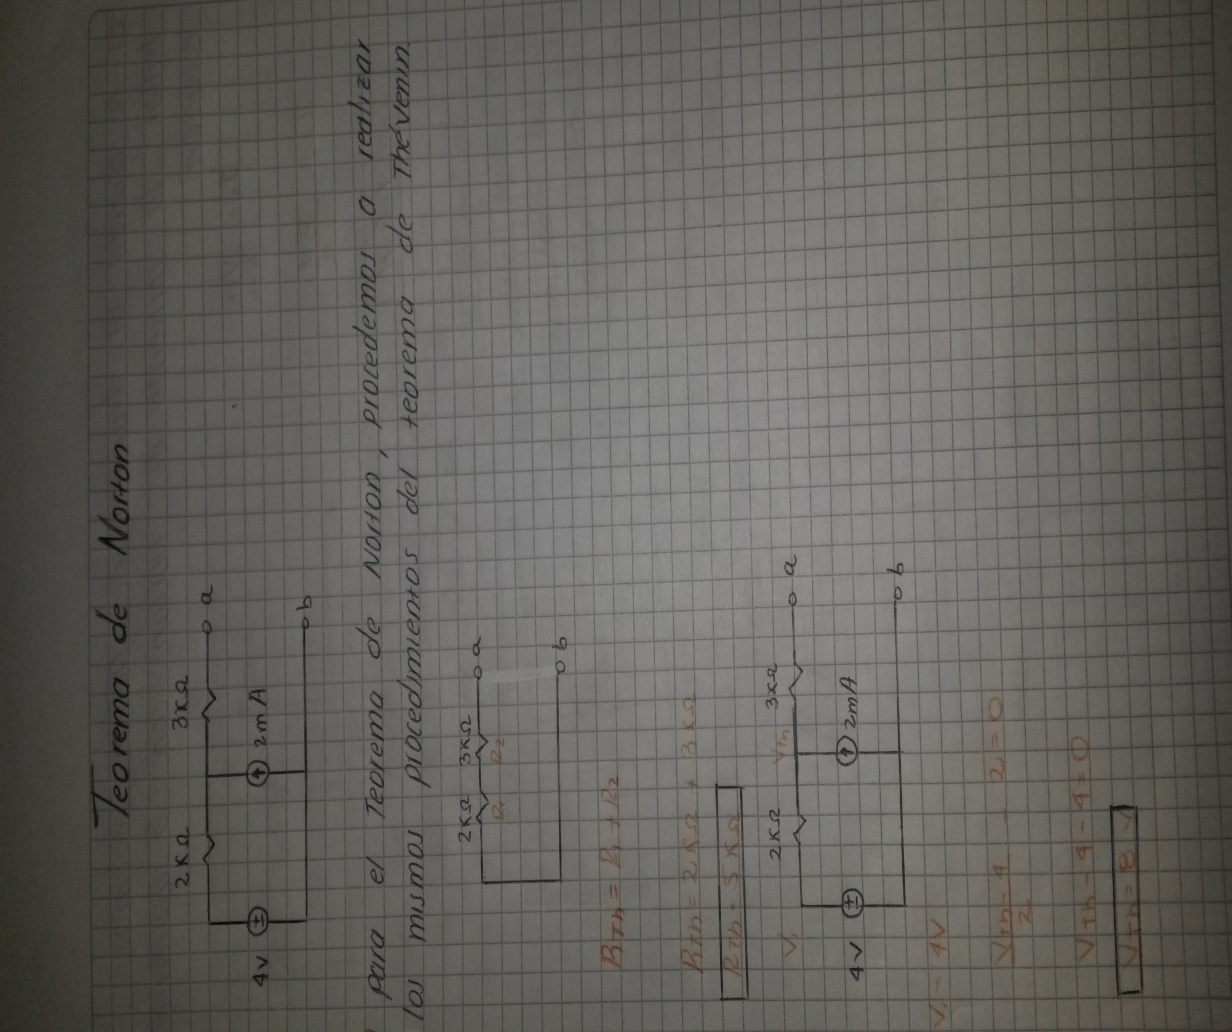 Teorema de Norton
2KΩ 3KΩ
a
4V 2mA
b
para el Teorema de Norton, procedemos a realizar
los mismos procedmientos del teorema de Thévenin
2KΩ 3KΩ a
R1 R2
b
RTh = R1 + R2
RTh = 2KΩ + 3KΩ
RTh = 5KΩ
2KΩ 3KΩ
V1 VTh a
4V 2mA
b
V1 = 4V
VTh - 4 - 2 = 0
2
VTh - 4 - 4 = 0
VTh = 8 V